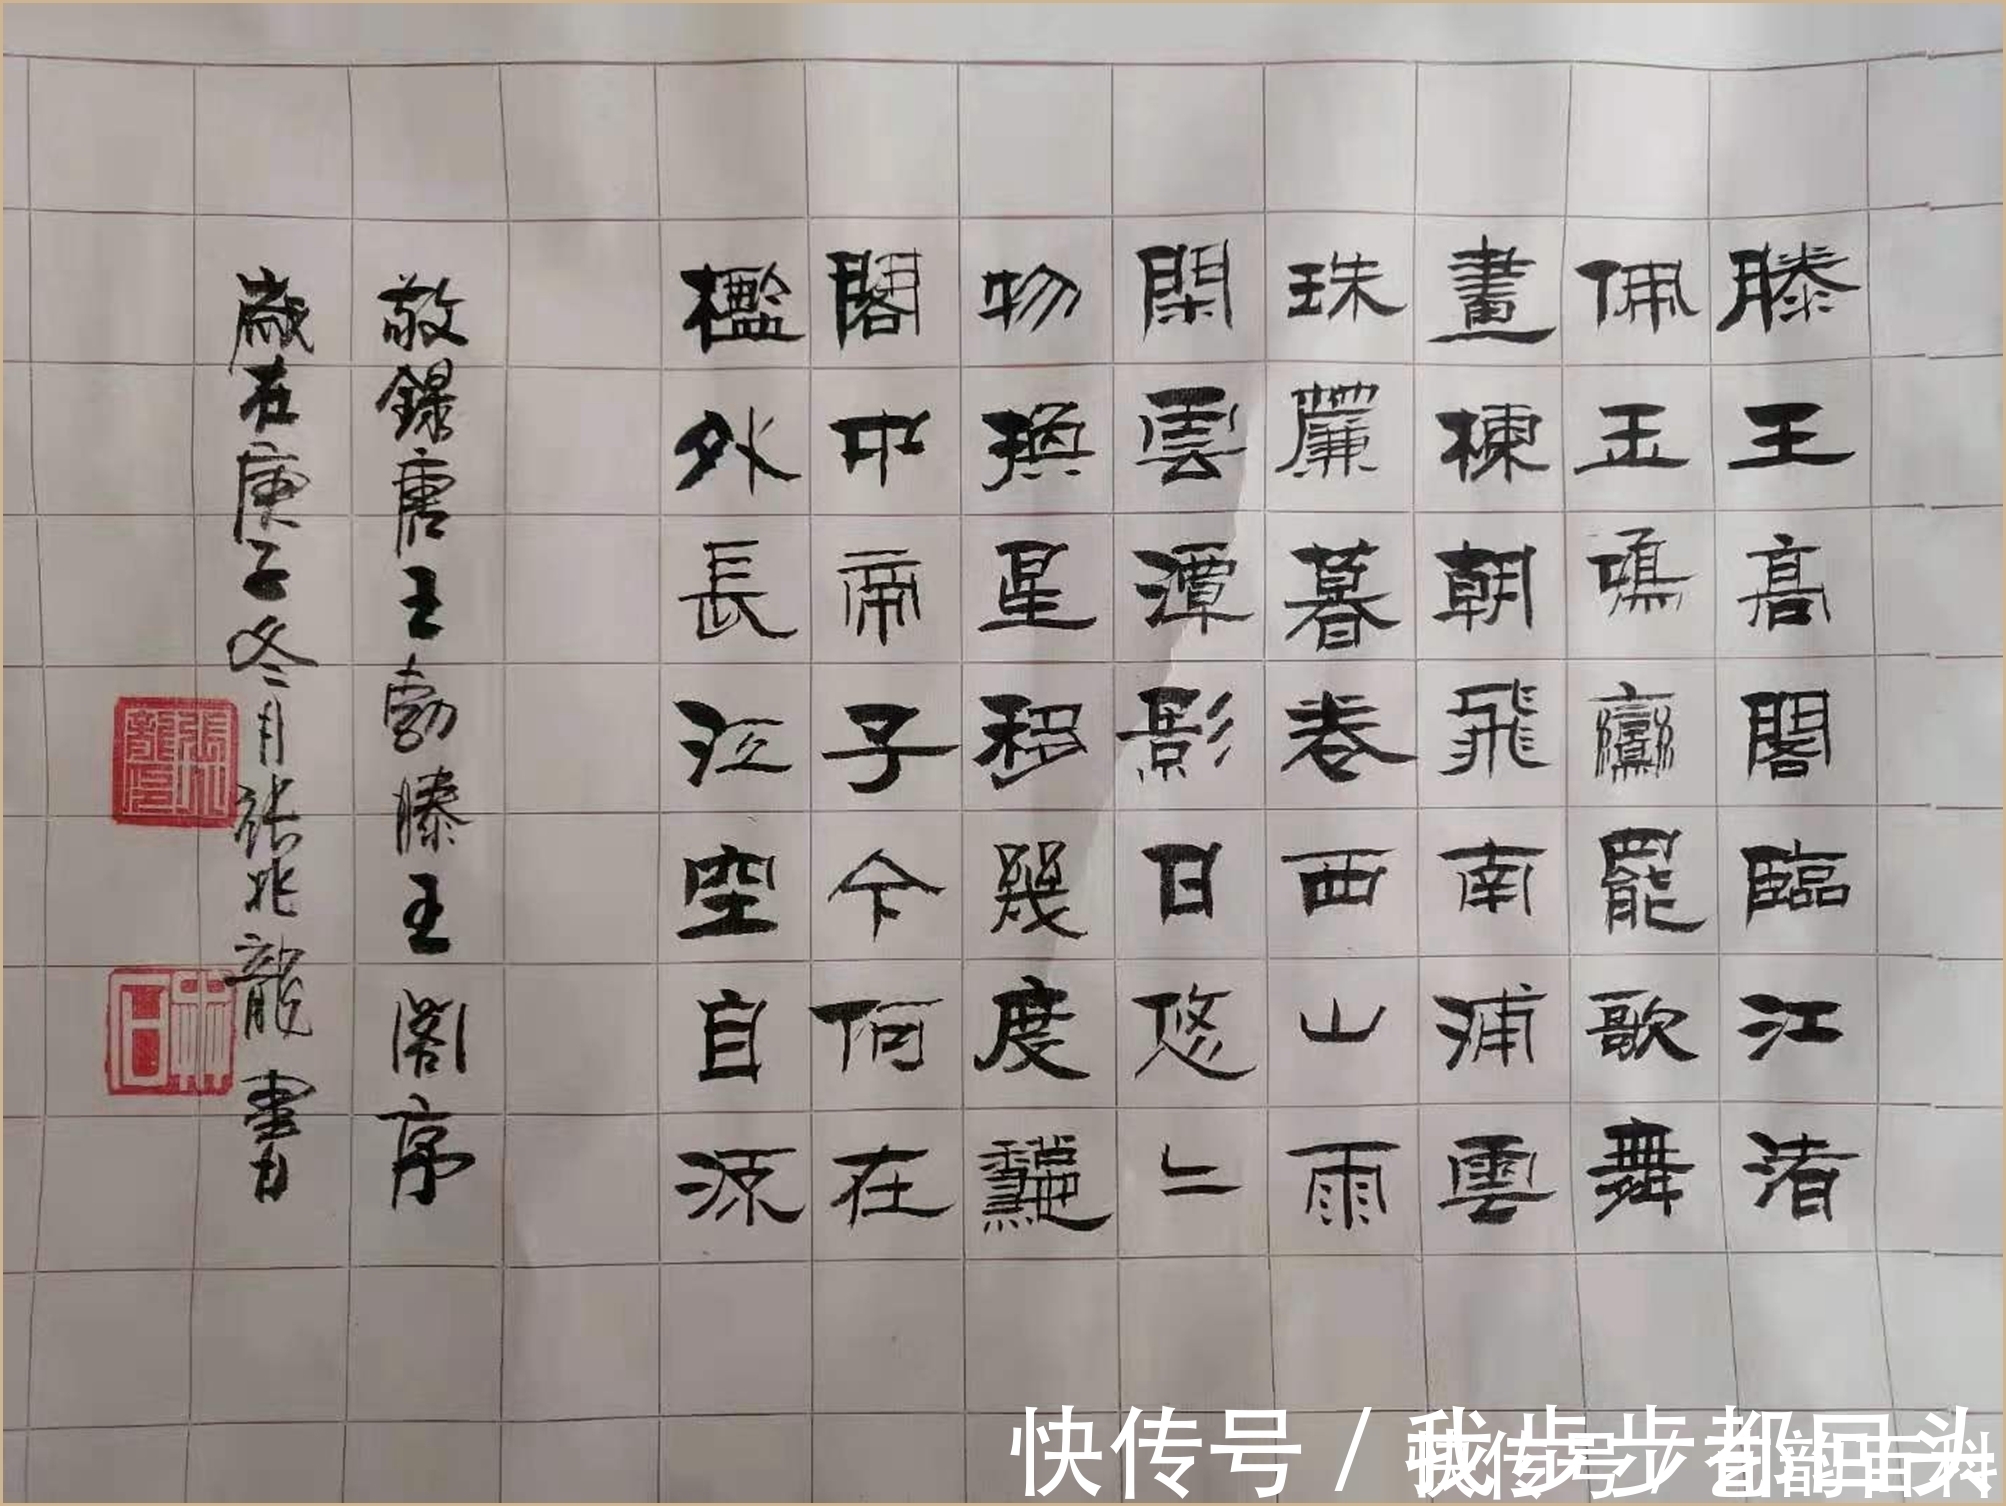 滕王高閣臨江渚
佩玉鳴鸞罷歌舞
畫棟朝飛南浦雲
珠簾暮卷西山雨
閑雲潭影日悠〻
物換星移幾度龝
閣中帝子今何在
檻外長江空自源
敬錄唐王勃滕王閣序
歲在庚子冬月張兆龍書
張兆龍印
快传号 / 我步步都回头
快传号 /